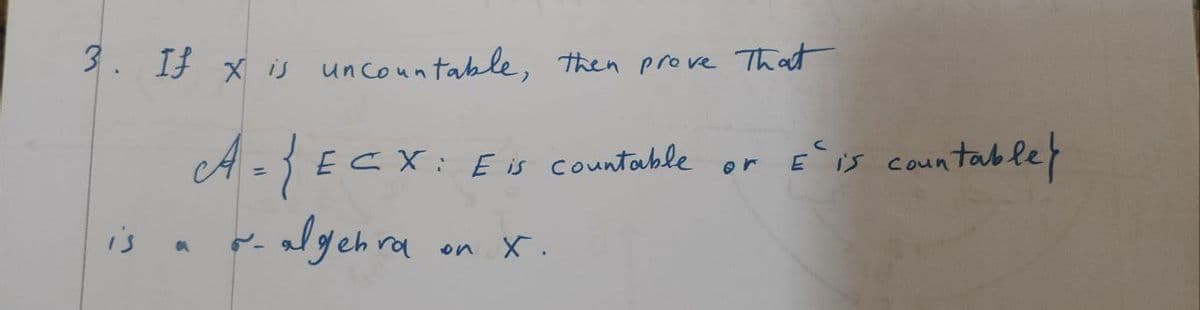 3. If X is uncountable, then prove That
A = { E ⊂ X : E is countable or Eᶜ is countable}
is a σ- algebra on X.